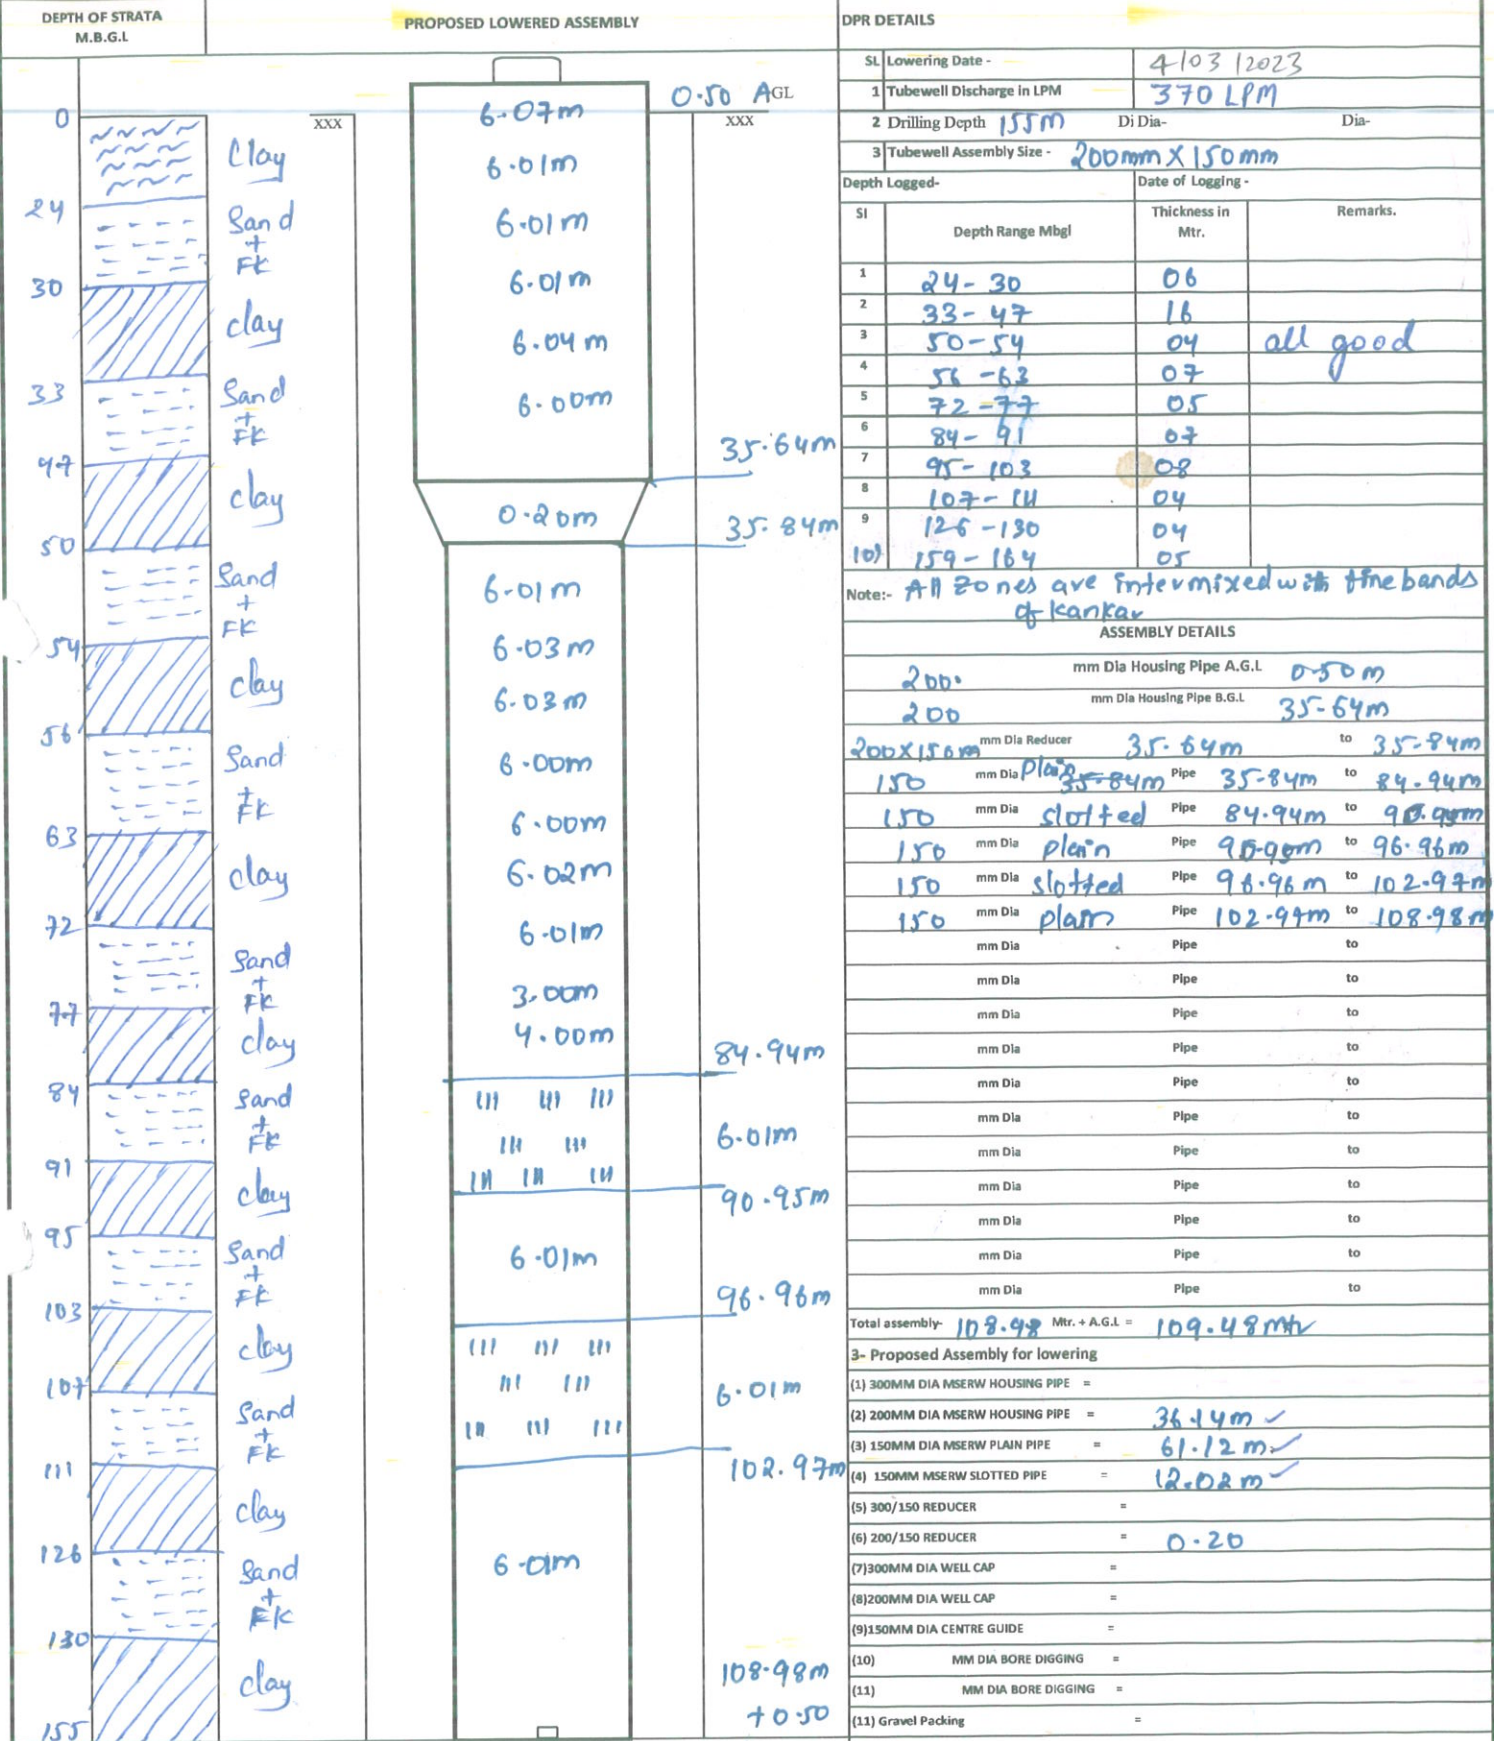 DEPTH OF STRATA
M.B.G.L
PROPOSED LOWERED ASSEMBLY
0
Clay
24
Sand
+
FK
30
clay
33
Sand
+
FK
47
clay
50
Sand
+
FK
54
clay
56
Sand
+
FK
63
clay
72
Sand
+
FK
77
clay
84
Sand
+
FK
91
clay
95
Sand
+
FK
103
clay
107
Sand
+
FK
111
clay
126
Sand
+
FK
130
clay
155
XXX
0.50 AGL
XXX
6.07m
6.01m
6.01m
6.01m
6.04m
6.00m
35.64m
0.20m
35.84m
6.01m
6.03m
6.03m
6.00m
6.00m
6.02m
6.01m
3.00m
4.00m
84.94m
6.01m
90.95m
6.01m
96.96m
6.01m
102.97m
6.01m
108.98m
+0.50
DPR DETAILS
SL Lowering Date - 4/03/2023
1 Tubewell Discharge in LPM 370 LPM
2 Drilling Depth 155m Di Dia- Dia-
3 Tubewell Assembly Size - 200mm X 150mm
Depth Logged- Date of Logging -
Sl Depth Range Mbgl Thickness in Mtr. Remarks.
1 24-30 06
2 33-47 16
3 50-54 04 all good
4 56-63 07
5 72-77 05
6 84-91 07
7 95-103 08
8 107-111 04
9 126-130 04
10) 159-164 05
Note:- All zones are intermixed with fine bands
of kankar
ASSEMBLY DETAILS
200. mm Dia Housing Pipe A.G.L 0.50m
200 mm Dia Housing Pipe B.G.L 35-64m
200X150m mm Dia Reducer 35.64m to 35-84m
150 mm Dia Plain 35-84m Pipe 35-84m to 84.94m
150 mm Dia slotted Pipe 84.94m to
150 mm Dia plain Pipe to 96.96m
150 mm Dia slotted Pipe 96.96m to 102.97m
150 mm Dia plain Pipe 102.97m to 108.98m
mm Dia Pipe to
mm Dia Pipe to
mm Dia Pipe to
mm Dia Pipe to
mm Dia Pipe to
mm Dia Pipe to
mm Dia Pipe to
mm Dia Pipe to
mm Dia Pipe to
mm Dia Pipe to
mm Dia Pipe to
Total assembly- 108.98 Mtr. + A.G.L = 109.48mtr
3- Proposed Assembly for lowering
(1) 300MM DIA MSERW HOUSING PIPE =
(2) 200MM DIA MSERW HOUSING PIPE = 36.14m ✓
(3) 150MM DIA MSERW PLAIN PIPE = 61.12m ✓
(4) 150MM MSERW SLOTTED PIPE = 12.02m ✓
(5) 300/150 REDUCER =
(6) 200/150 REDUCER = 0.20
(7)300MM DIA WELL CAP =
(8)200MM DIA WELL CAP =
(9)150MM DIA CENTRE GUIDE =
(10) MM DIA BORE DIGGING =
(11) MM DIA BORE DIGGING =
(11) Gravel Packing =